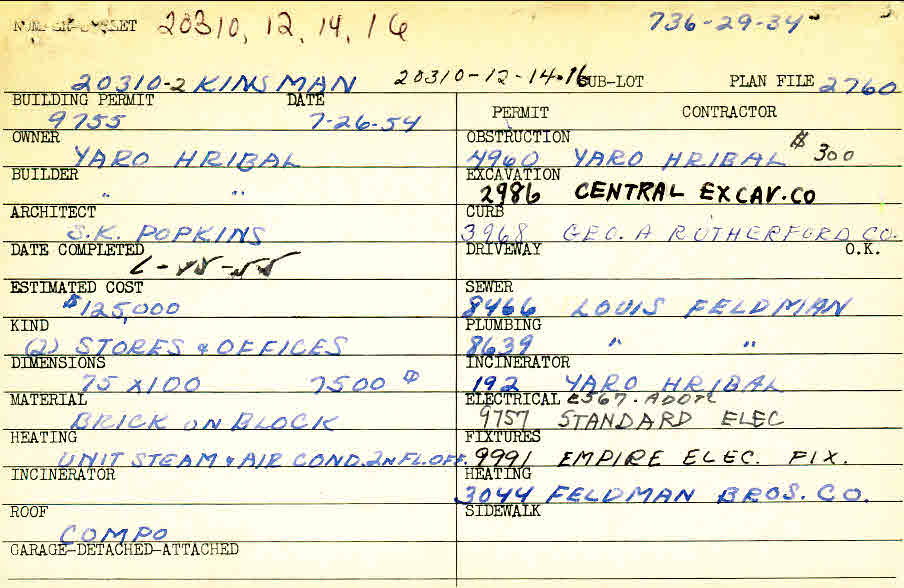 20310, 12, 14, 16 736-29-34
20310-2 KINSMAN 20310-12-14-16 SUB-LOT PLAN FILE 2760
BUILDING PERMIT DATE
9755 7-26-54
OWNER
YARO HRIBAL
BUILDER
" "
ARCHITECT
S.K. POPKINS
DATE COMPLETED
ESTIMATED COST
$125,000
KIND
(2) STORES & OFFICES
DIMENSIONS
75 X 100 7500
MATERIAL
BRICK ON BLOCK
HEATING
UNIT STEAM & AIR COND. 2N FL. OFF.
INCINERATOR
ROOF
COMPO
GARAGE-DETACHED-ATTACHED
PERMIT CONTRACTOR
OBSTRUCTION
4960 YARO HRIBAL $300
EXCAVATION
2986 CENTRAL EXCAV. CO
CURB
3968 GEO. A RUTHERFORD CO.
DRIVEWAY O.K.
SEWER
8466 LOUIS FELDMAN
PLUMBING
8639 " "
INCINERATOR
192 YARO HRIBAL
ELECTRICAL E567-ADDTL
9757 STANDARD ELEC
FIXTURES
9991 EMPIRE ELEC. FIX.
HEATING
3044 FELDMAN BROS. CO.
SIDEWALK